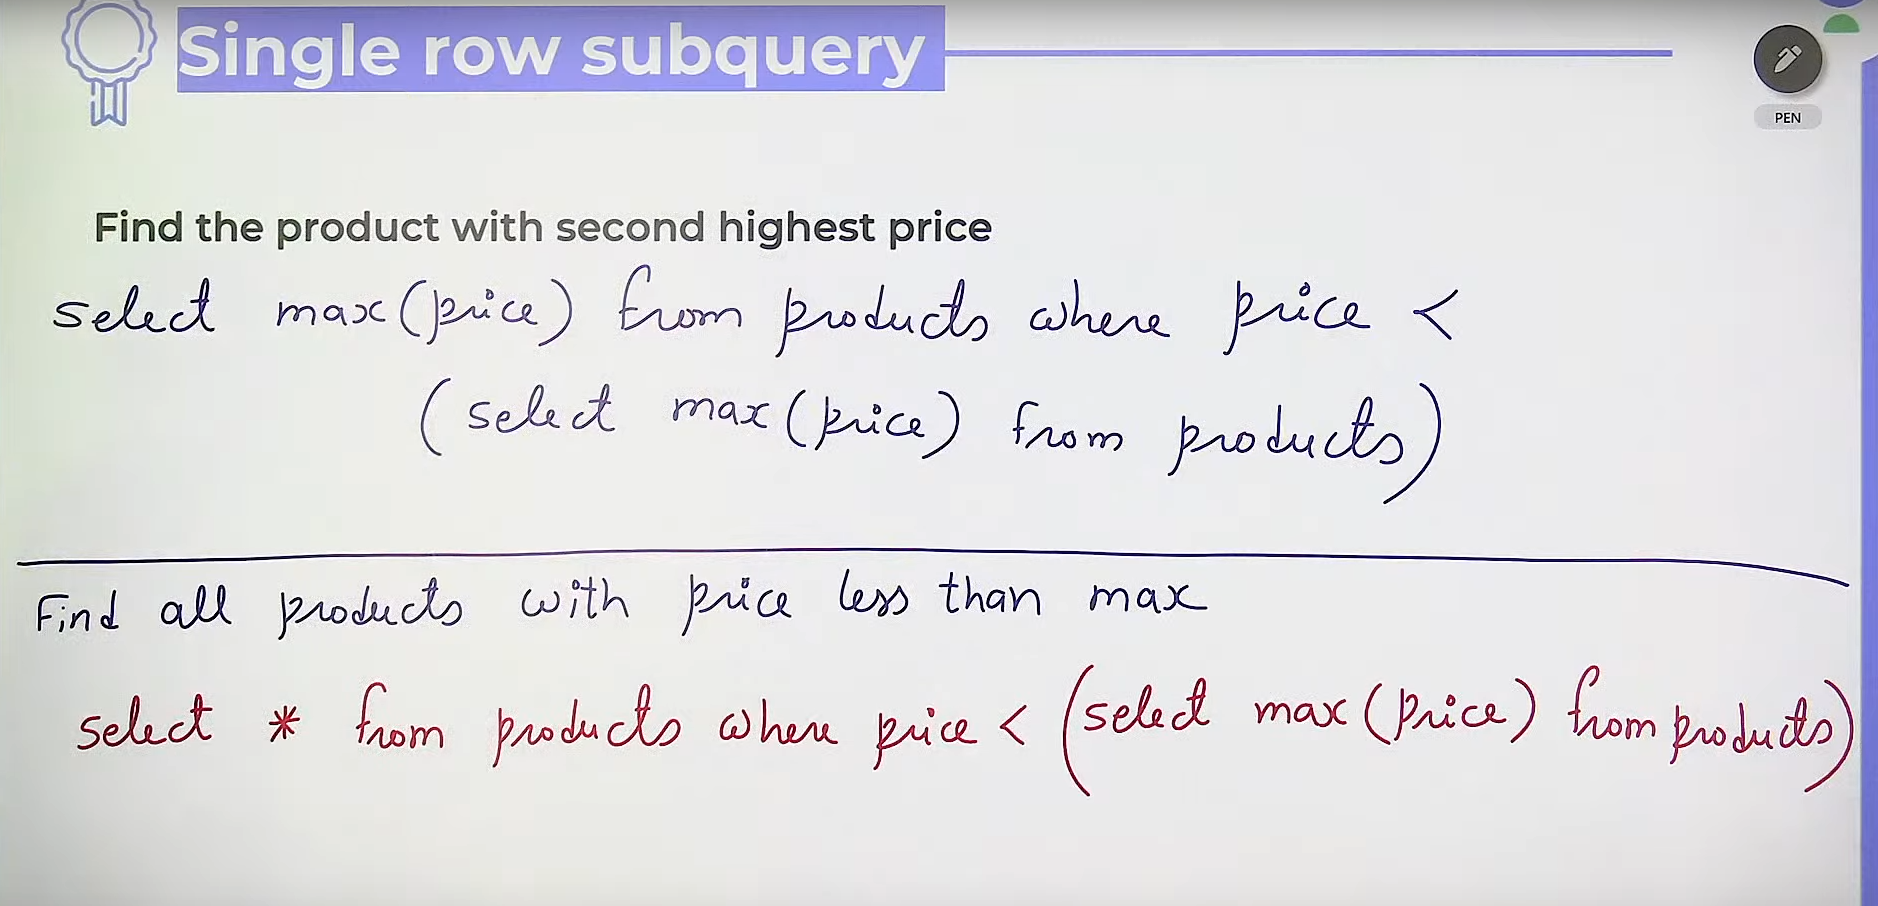 Single row subquery
PEN
Find the product with second highest price
select max(price) from products where price <
(select max(price) from products)
Find all products with price less than max
select * from products where price < (select max(price) from products)